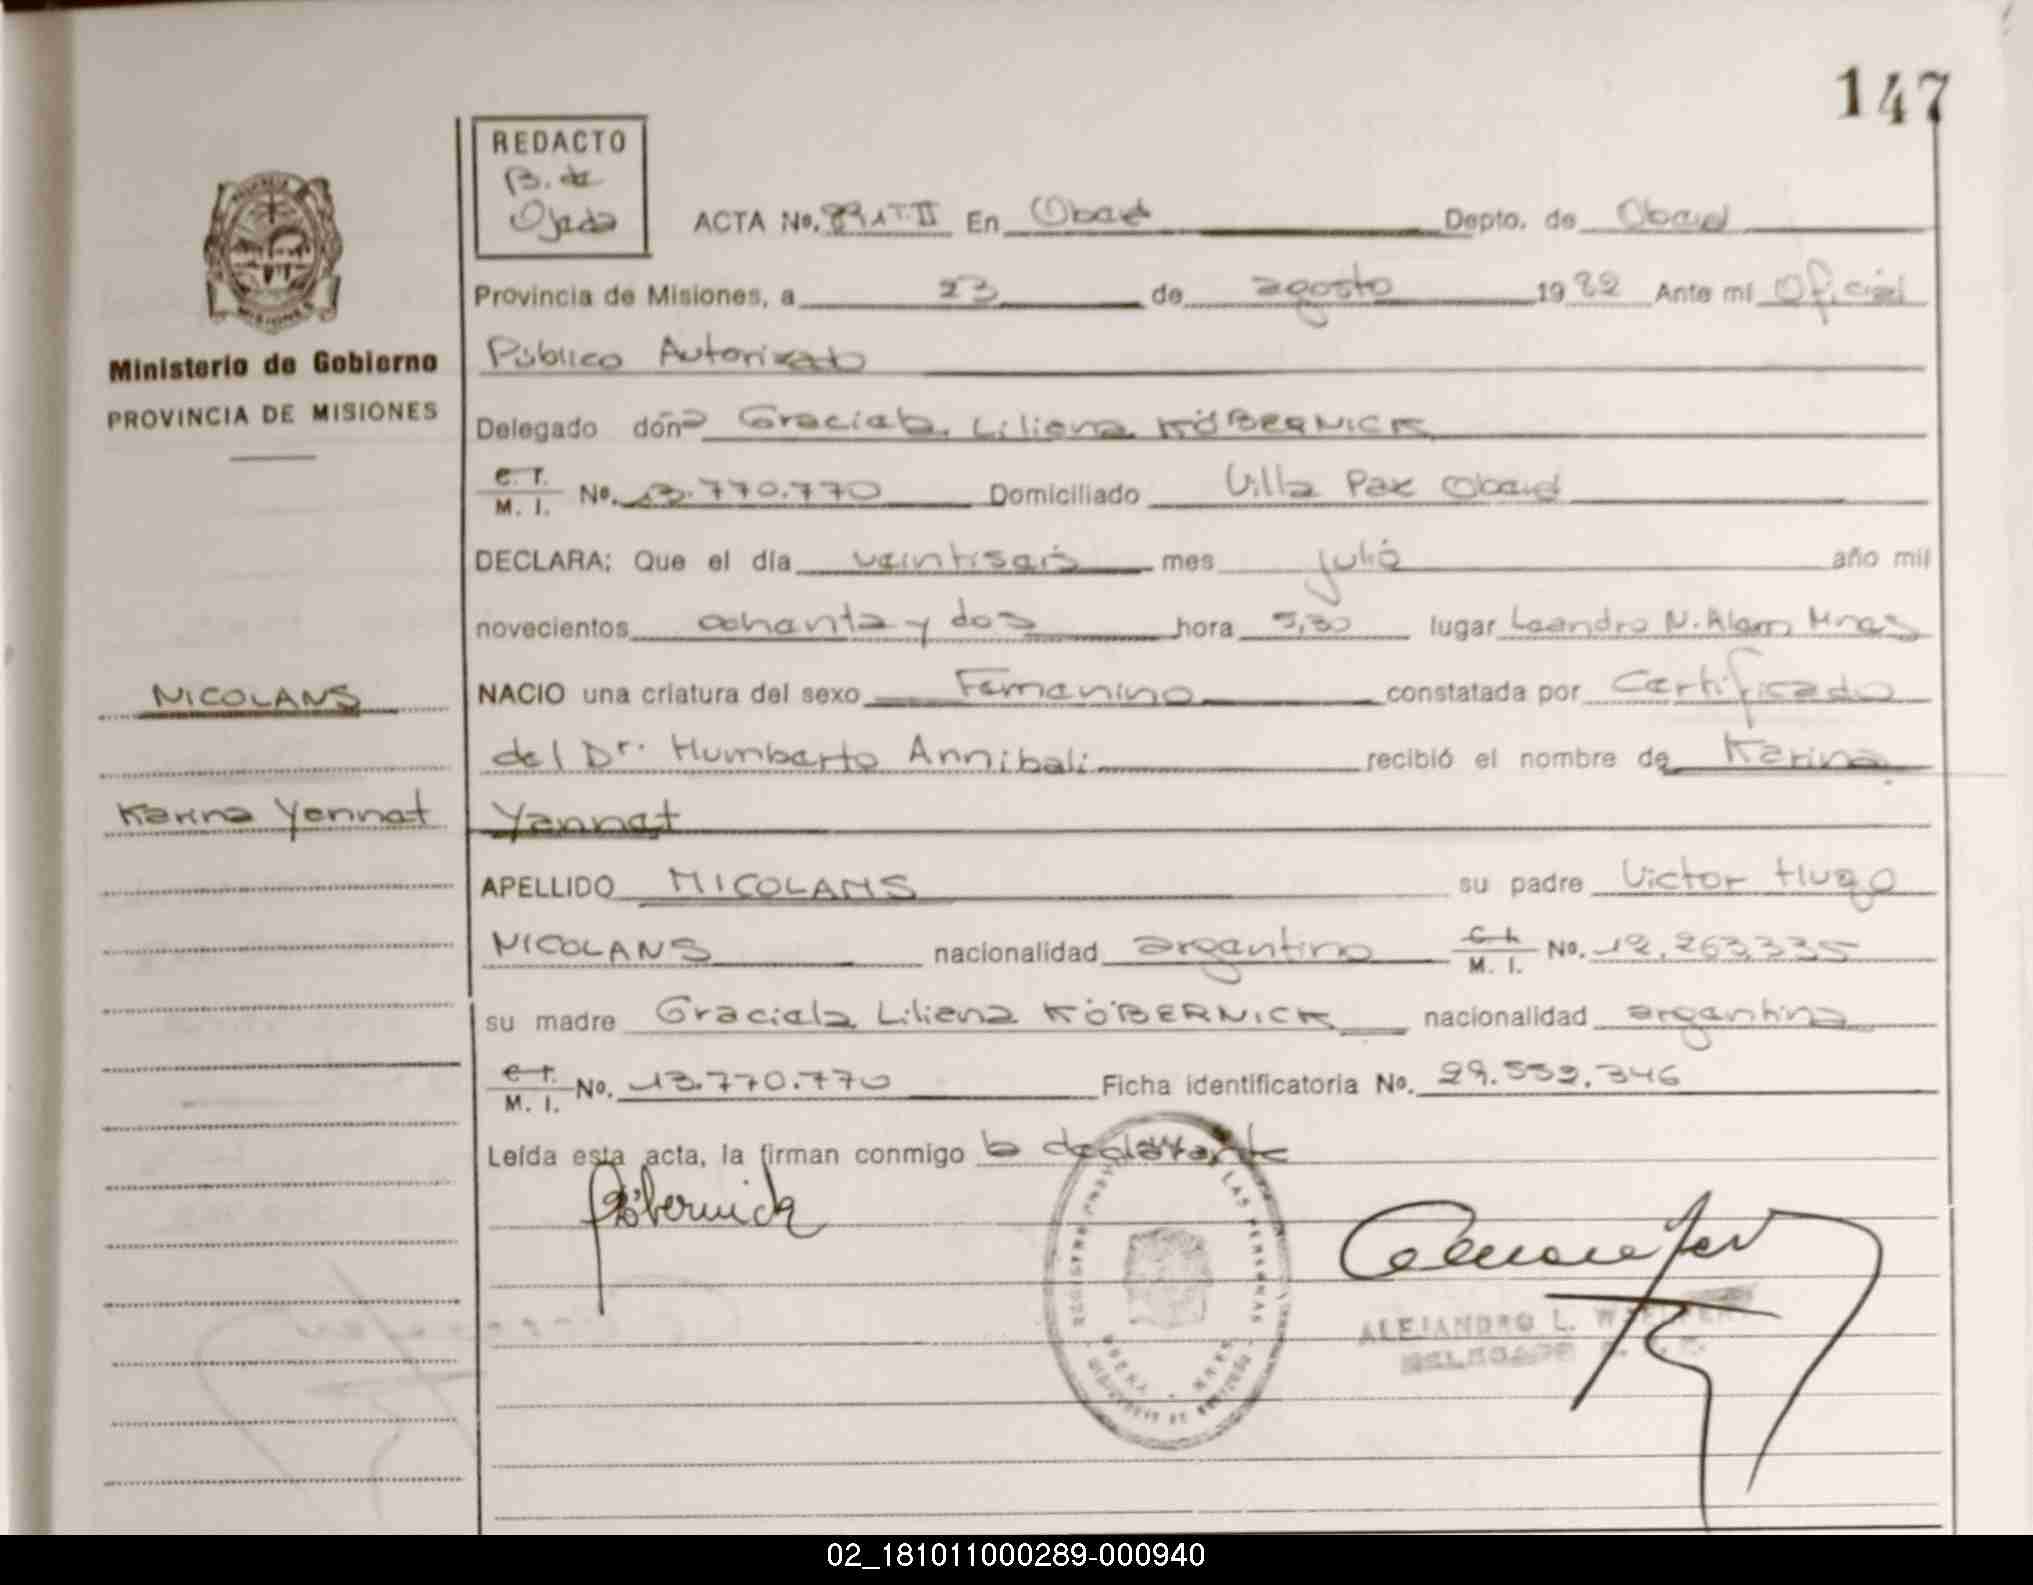 147
REDACTO
B. de
Ojeda
ACTA No. 891 T. II En Oberá Depto. de Oberá
Provincia de Misiones, a 23 de agosto 1982 Ante mí Oficial
Público Autorizado
Ministerio de Gobierno
PROVINCIA DE MISIONES
Delegado doña Graciela Liliana KÖBERNICK
C. I.
M. I. No. 13.770.770 Domiciliado Villa Paz Oberá
DECLARA: Que el día veintiseis mes julio año mil
novecientos ochenta y dos hora 5,30 lugar Leandro N. Alem Mnes
NICOLANS
NACIO una criatura del sexo Femenino constatada por Certificado
del Dr. Humberto Annibali recibió el nombre de Karina
Karina Yennat
Yennat
APELLIDO NICOLANS su padre Victor Hugo
NICOLANS nacionalidad argentino C. I. M. I. No. 12.263.335
su madre Graciela Liliana KÖBERNICK nacionalidad argentina
C. I.
M. I. No. 13.770.770 Ficha identificatoria No. 29.552.346
Leída esta acta, la firman conmigo la declarante
Köbernick
LAS PERSONAS
ALEJANDRO L.
DELEGADO
02_181011000289-000940